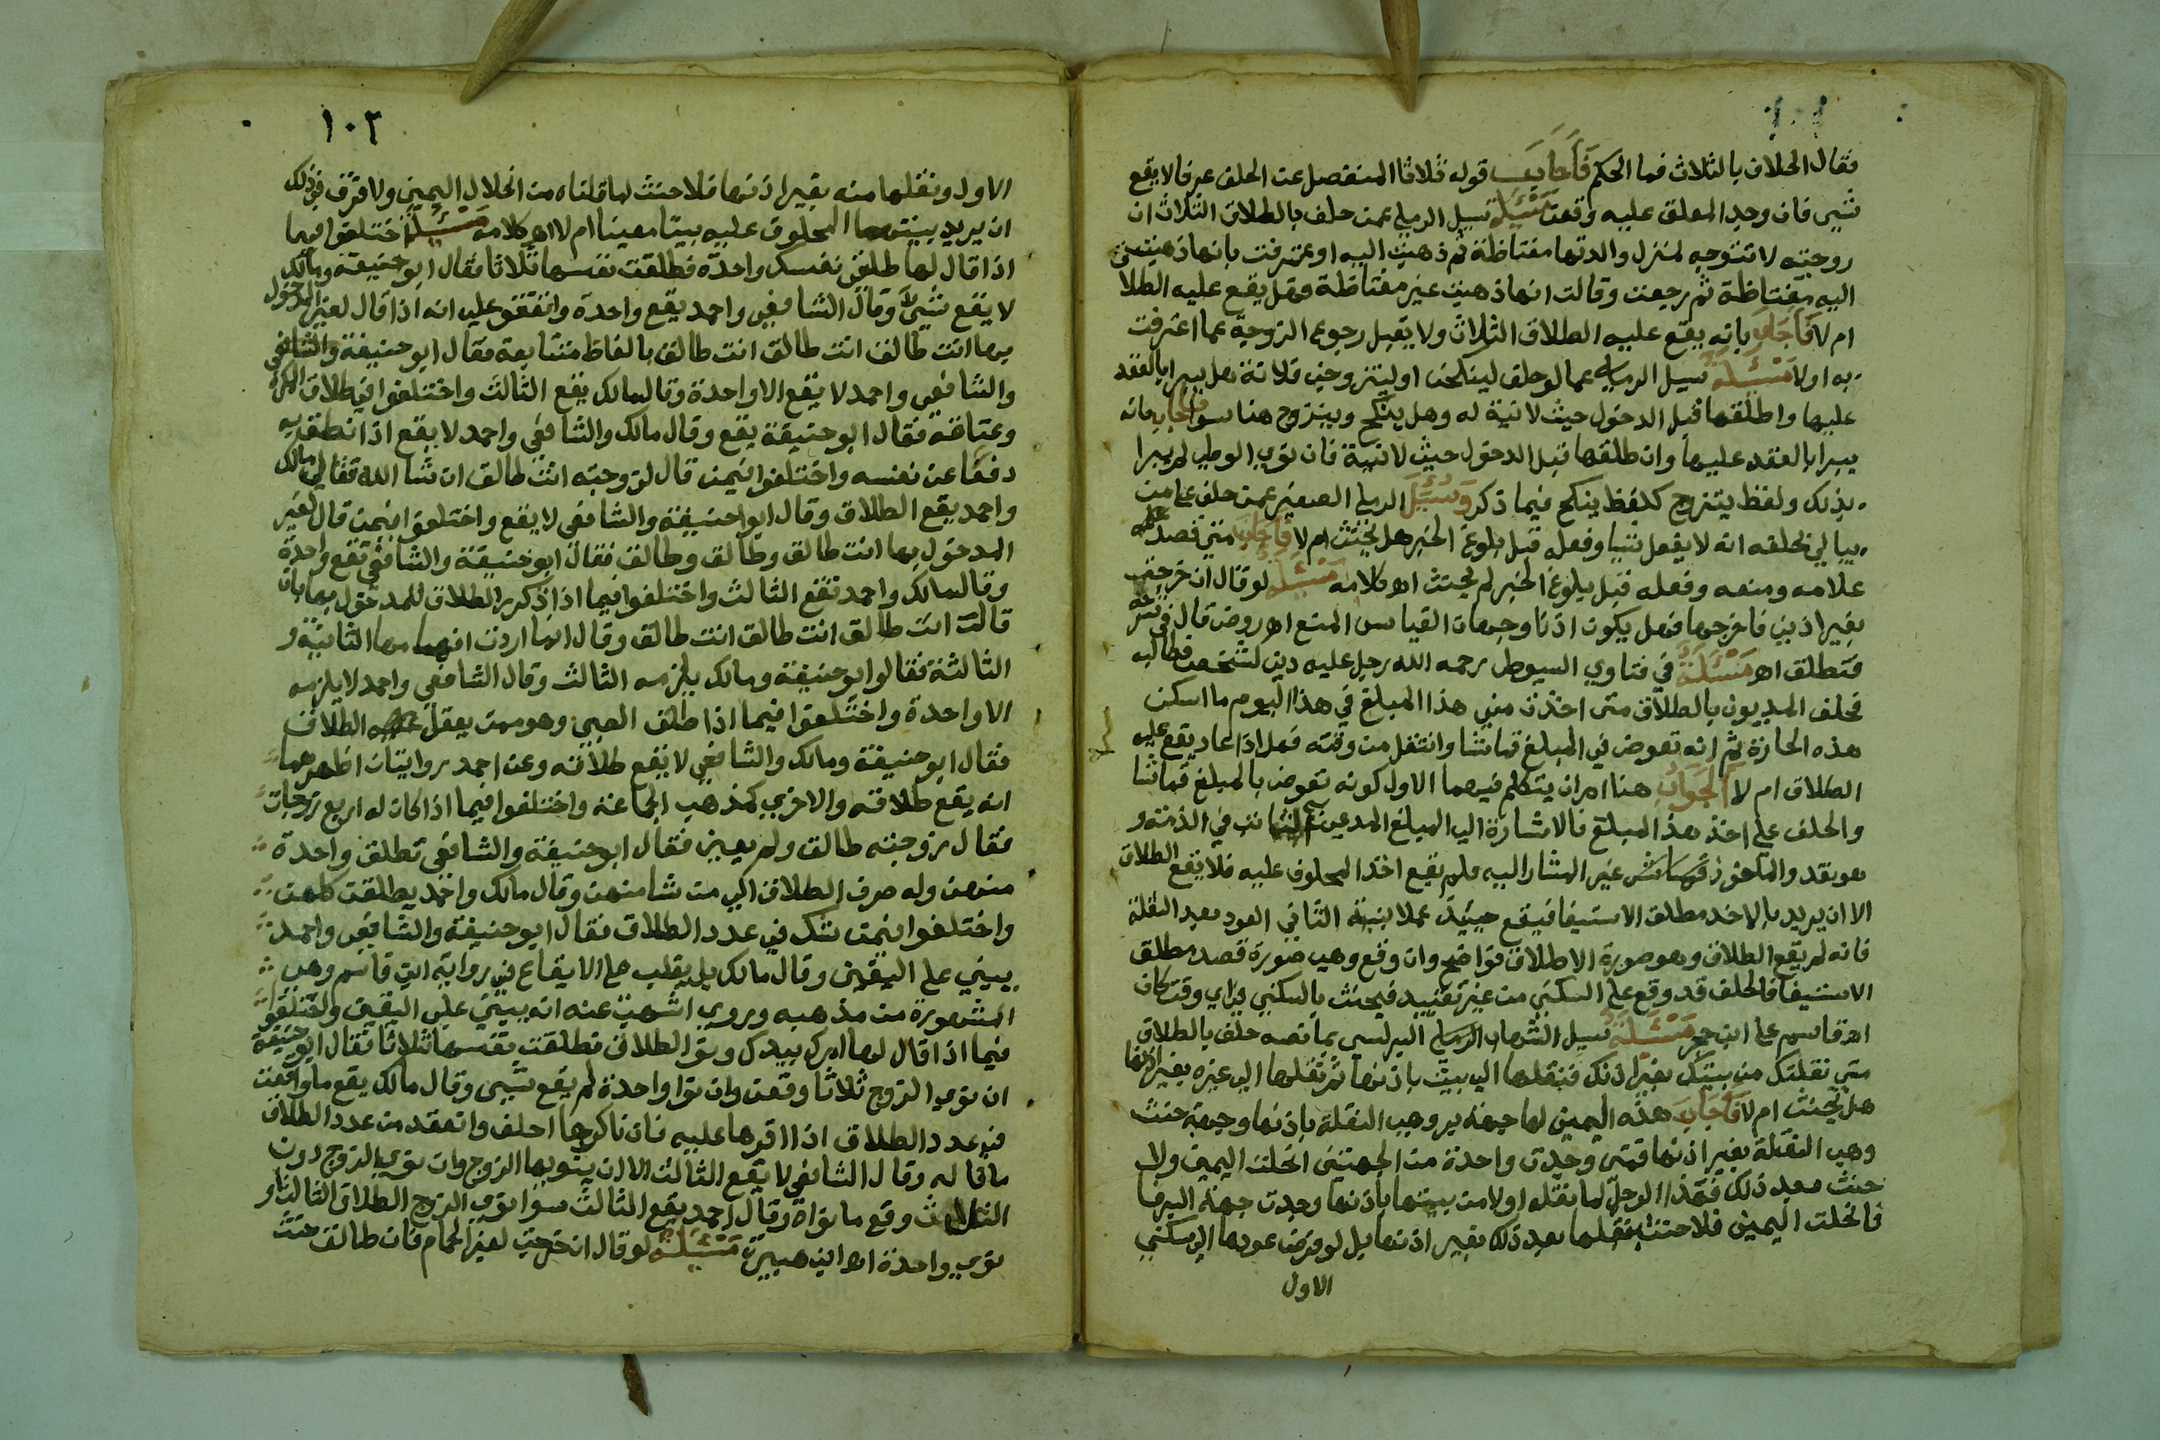 فقال الحلاف بالثلاث فما الحكم فأجاب قوله ثلاثا المنفصل عن الحلف عرفا لا يقع
شيى فان وجد المعلق عليه وقعت مسئلة سيل الرملي عمن حلف بالطلاق الثلاث ان
زوجته لا تتوجه لمنزل والدتها مغتاظة ثم ذهبت اليه او عترفت بانها ذهبت
اليه مغتاظة ثم رجعت وقالت انها ذهبت غير مغتاظة فهل يقع عليه الطلا
ام لا فأجاب بانه يقع عليه الطلاق الثلاث ولا يقبل رجوع الزوجة عما اعترفت
به اولا مسئلة سيل الرملي عما لو حلف لينكحن او ليتزوجن فلانة هل يبرا بالعقد
عليها واطلقها قبل الدخول حيث لانية له وهل ينكح ويتزوج هنا سوا فاجاب بانه
يبرا بالعقد عليها وان طلقها قبل الدخول حيث لا نية فان نوي الوطي لم يبرا
بذلك ولفظ يتزوج كلفظ ينكح فيما ذكر وسئل الرملي الصغير عمن حلف على من
يبالي بحلفه انه لا يفعل شيا وفعله قبل بلوغ الخبر هل يحنث ام لا فأجاب متي قصد
علامه ومنعه وفعله قبل بلوغ الخبر لم يحنث اه كلامه مسئلة لو قال ان خرجتي
بغير اذني فاخرجها فهل يكون اذنا وجهان القياس المنع اه روض قال في
فتطلق اه مسئلة في فتاوي السيوطي رحمه الله رجل عليه دين لشخص فطالبه
فحلف المديون بالطلاق متى اخذت مني هذا المبلغ في هذا اليوم ما اسكن
هذه الحارة ثم انه تعوض في المبلغ قماشا وانتقل من وقته فهل اذا عاد يقع عليه
الطلاق ام لا الجواب هنا امران يتكلم فيهما الاول كونه تعوض بالمبلغ قماشا
والحلف على اخذ هذا المبلغ فالاشارة الى المبلغ المدعي في الذمة و
هو نقد والماخوذ قماش غير المشار اليه فلم يقع اخذ المحلوف عليه فلا يقع الطلاق
الا ان يريد بالاخذ مطلق الاستيفا فيقع حينيذ عملا بنيته الثاني العود بعد النقلة
فانه لم يقع الطلاق وهو صورة الاطلاق فواضح وان وقع وهي صورة قصد مطلق
الاستيفا فالحلف قد وقع على السكني من غير تقييد فيحنث بالسكني في اي وقت كان
اه قاسم على ابن حجر مسئلة سيل الشهاب الرملي البرلسي بما نصه حلف بالطلاق
متي نقلتك من بيتك بغير اذنك فنقلها الى بيت باذنها ثم نقلها الي غيره بغير اذنها
هل يحنث ام لا فأجاب هذه اليمين لها جهة بر وهي النقلة باذنها وجهة حنث
وهي النقلة بغير اذنها فمتى وجدت واحدة من الجهتين انحلت اليمين ولا
حنث بعد ذلك فهذا الرجل لما نقلها اولا من بيتها باذنها وجدت جهة البر فا
فانحلت اليمين فلا حنث بنقلها بعد ذلك بغير اذنها بل لو فرض عودها الي سكني
الاول
١٠٢
الاول ونقلها منه بغير اذنها فلا حنث لما قلناه من انحلال اليمين ولا فرق في ذلك
ان يريد ببيتها المحلوف عليه بيتا معينا ام لا اه كلامه مسئلة اختلفوا فيما
اذا قال لها طلقي نفسك واحدة فطلقت نفسها ثلاثا فقال ابو حنيفة ومالك
لا يقع شيئ وقال الشافعي واحمد يقع واحدة واتفقوا عليه انه اذا قال لغير المدخول
بها انت طالق انت طالق انت طالق بالفاظ متتابعة فقال ابو حنيفة والشافعي
والشافعي واحمد لا يقع الا واحدة وقال مالك يقع الثالث واختلفوا في طلاق المكره
وعتاقه فقال ابو حنيفة يقع وقال مالك والشافعي واحمد لا يقع اذا نطق به
دفعا عن نفسه واختلفوا فيمن قال لزوجته انت طالق ان شا الله فقال مالك
واحمد يقع الطلاق وقال ابو حنيفة والشافعي لا يقع واختلفوا فيمن قال لغير
المدخول بها انت طالق وطالق وطالق فقال ابو حنيفة والشافعي تقع واحدة
وقال مالك واحمد تقع الثالث واختلفوا فيما اذا ذكرر الطلاق للمدخول بها بان
قالت انت طالق انت طالق انت طالق وقال انما اردت افهامها الثانية و
الثالثة فقال ابو حنيفة ومالك يلزمه الثالث وقال الشافعي واحمد لا يلزمه
الا واحدة واختلفوا فيما اذا طلق الصبي وهو ممن يعقل الطلاق
فقال ابو حنيفة ومالك والشافعي لا يقع طلاقه وعن احمد روايتان اظهرهما
انه يقع طلاقه والاخري كمذهب الجماعة واختلفوا فيما اذا كان له اربع زوجات
فقال زوجته طالق ولم يعين فقال ابو حنيفة والشافعي تطلق واحدة
منهن وله صرف الطلاق الي من شا منهن وقال مالك واحمد يطلقت كلهن
واختلفوا فيمن شك في عدد الطلاق فقال ابو حنيفة والشافعي واحمد
يبني على اليقين وقال مالك بل يغلب على الايقاع في رواية ابن قاسم وهي
المشهورة من مذهبه وروي اشهب عنه انه يبني على اليقين واختلفوا
فيما اذا قال لها امرك بيدك ونوا الطلاق فطلقت نفسها ثلاثا فقال ابو حنيفة
ان نوي الزوج ثلاثا وقعن وان نوا واحدة لم يقع شيى وقال مالك يقع ما اوقعت
من عدد الطلاق اذا اقرها عليه فان ناكرها احلف وانعقد من عدد الطلاق
ما قاله وقال الشافعي لا يقع الثالث الا ان ينويها الزوج وان نوي الزوج دون
الثلاث وقع ما نواه وقال احمد يقع الثالث سوا نوي الزوج الطلاق الثالث او
نوي واحدة اه ابن هبيرة مسئلة لو قال ان خرجتي لغير الحمام فانت طالق حنث